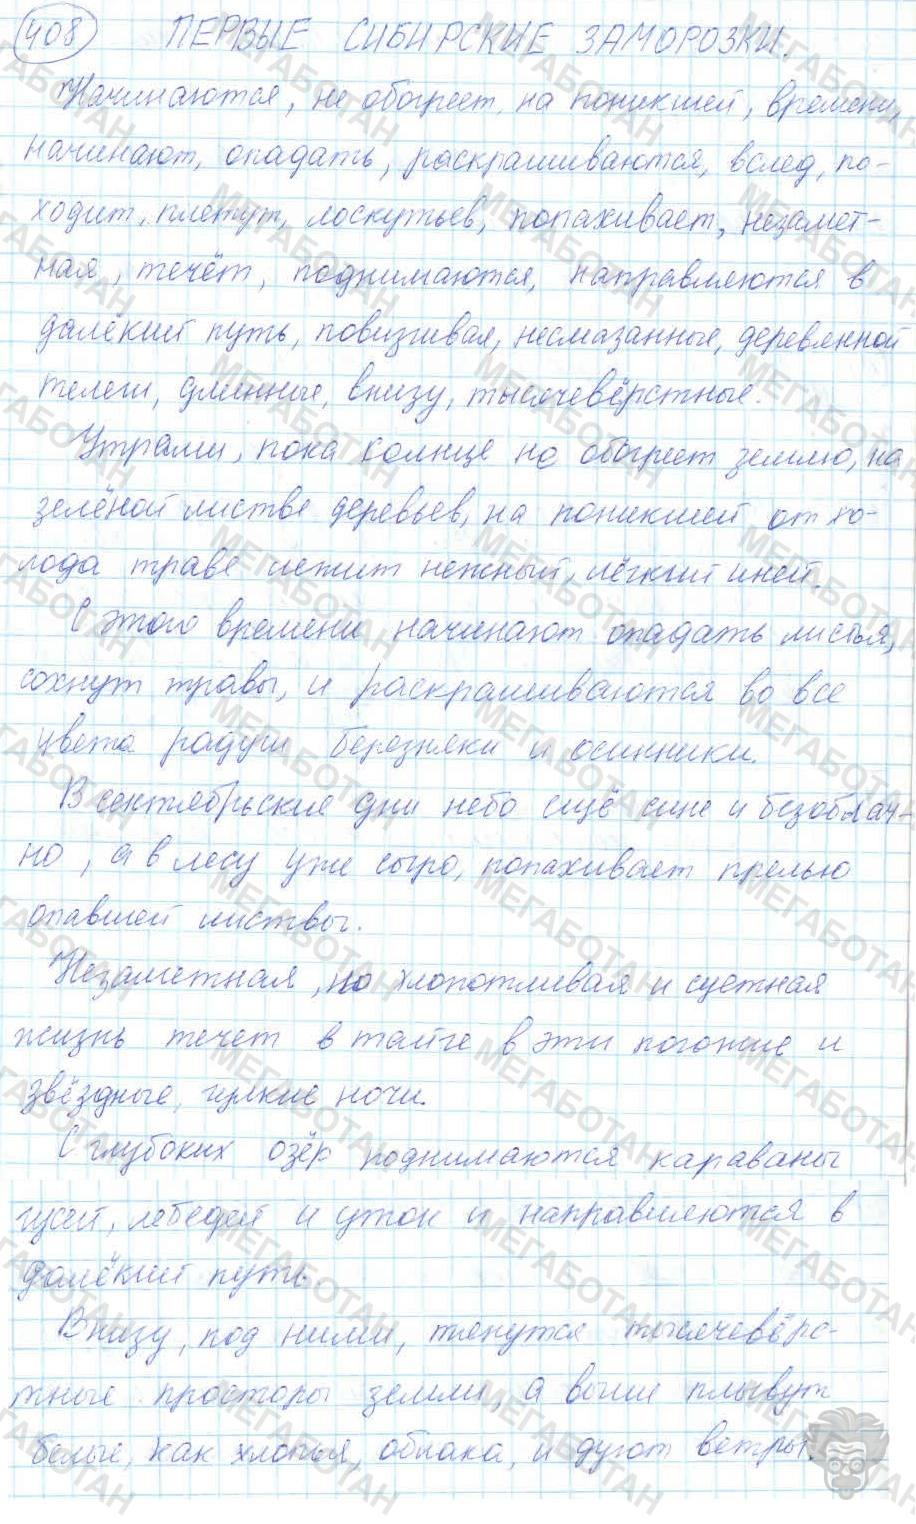 408 ПЕРВЫЕ СИБИРСКИЕ ЗАМОРОЗКИ.
Начинаются, не обогреет, на поникшей, времени,
начинают, опадать, раскрашиваются, вслед, по-
ходит, плетут, лоскутьев, попахивает, незамет-
ная, течёт, поднимаются, направляются в
далёкий путь, повизгивая, несмазанные, деревянной
телеги, длинные, внизу, тысячевёрстные.
Утрами, пока солнце не обогреет землю, на
зелёной листве деревьев, на поникшей от хо-
лода траве лежит нежный, лёгкий иней.
С этого времени начинают опадать листья,
сохнут травы, и раскрашиваются во все
цвета радуги березняки и осинники.
В сентябрьские дни небо ещё сине и безоблач-
но, а в лесу уже сыро, попахивает прелью
опавшей листвы.
Незаметная, но хлопотливая и суетная
жизнь течет в тайге в эти погожие и
звёздные, гулкие ночи.
С глубоких озёр поднимаются караваны
гусей, лебедей и уток и направляются в
далёкий путь.
Внизу, под ними, тянутся тысячевёрс-
тные просторы земли, а выше плывут
белые, как хлопья, облака, и дуют ветры.
МЕГАБОТАН